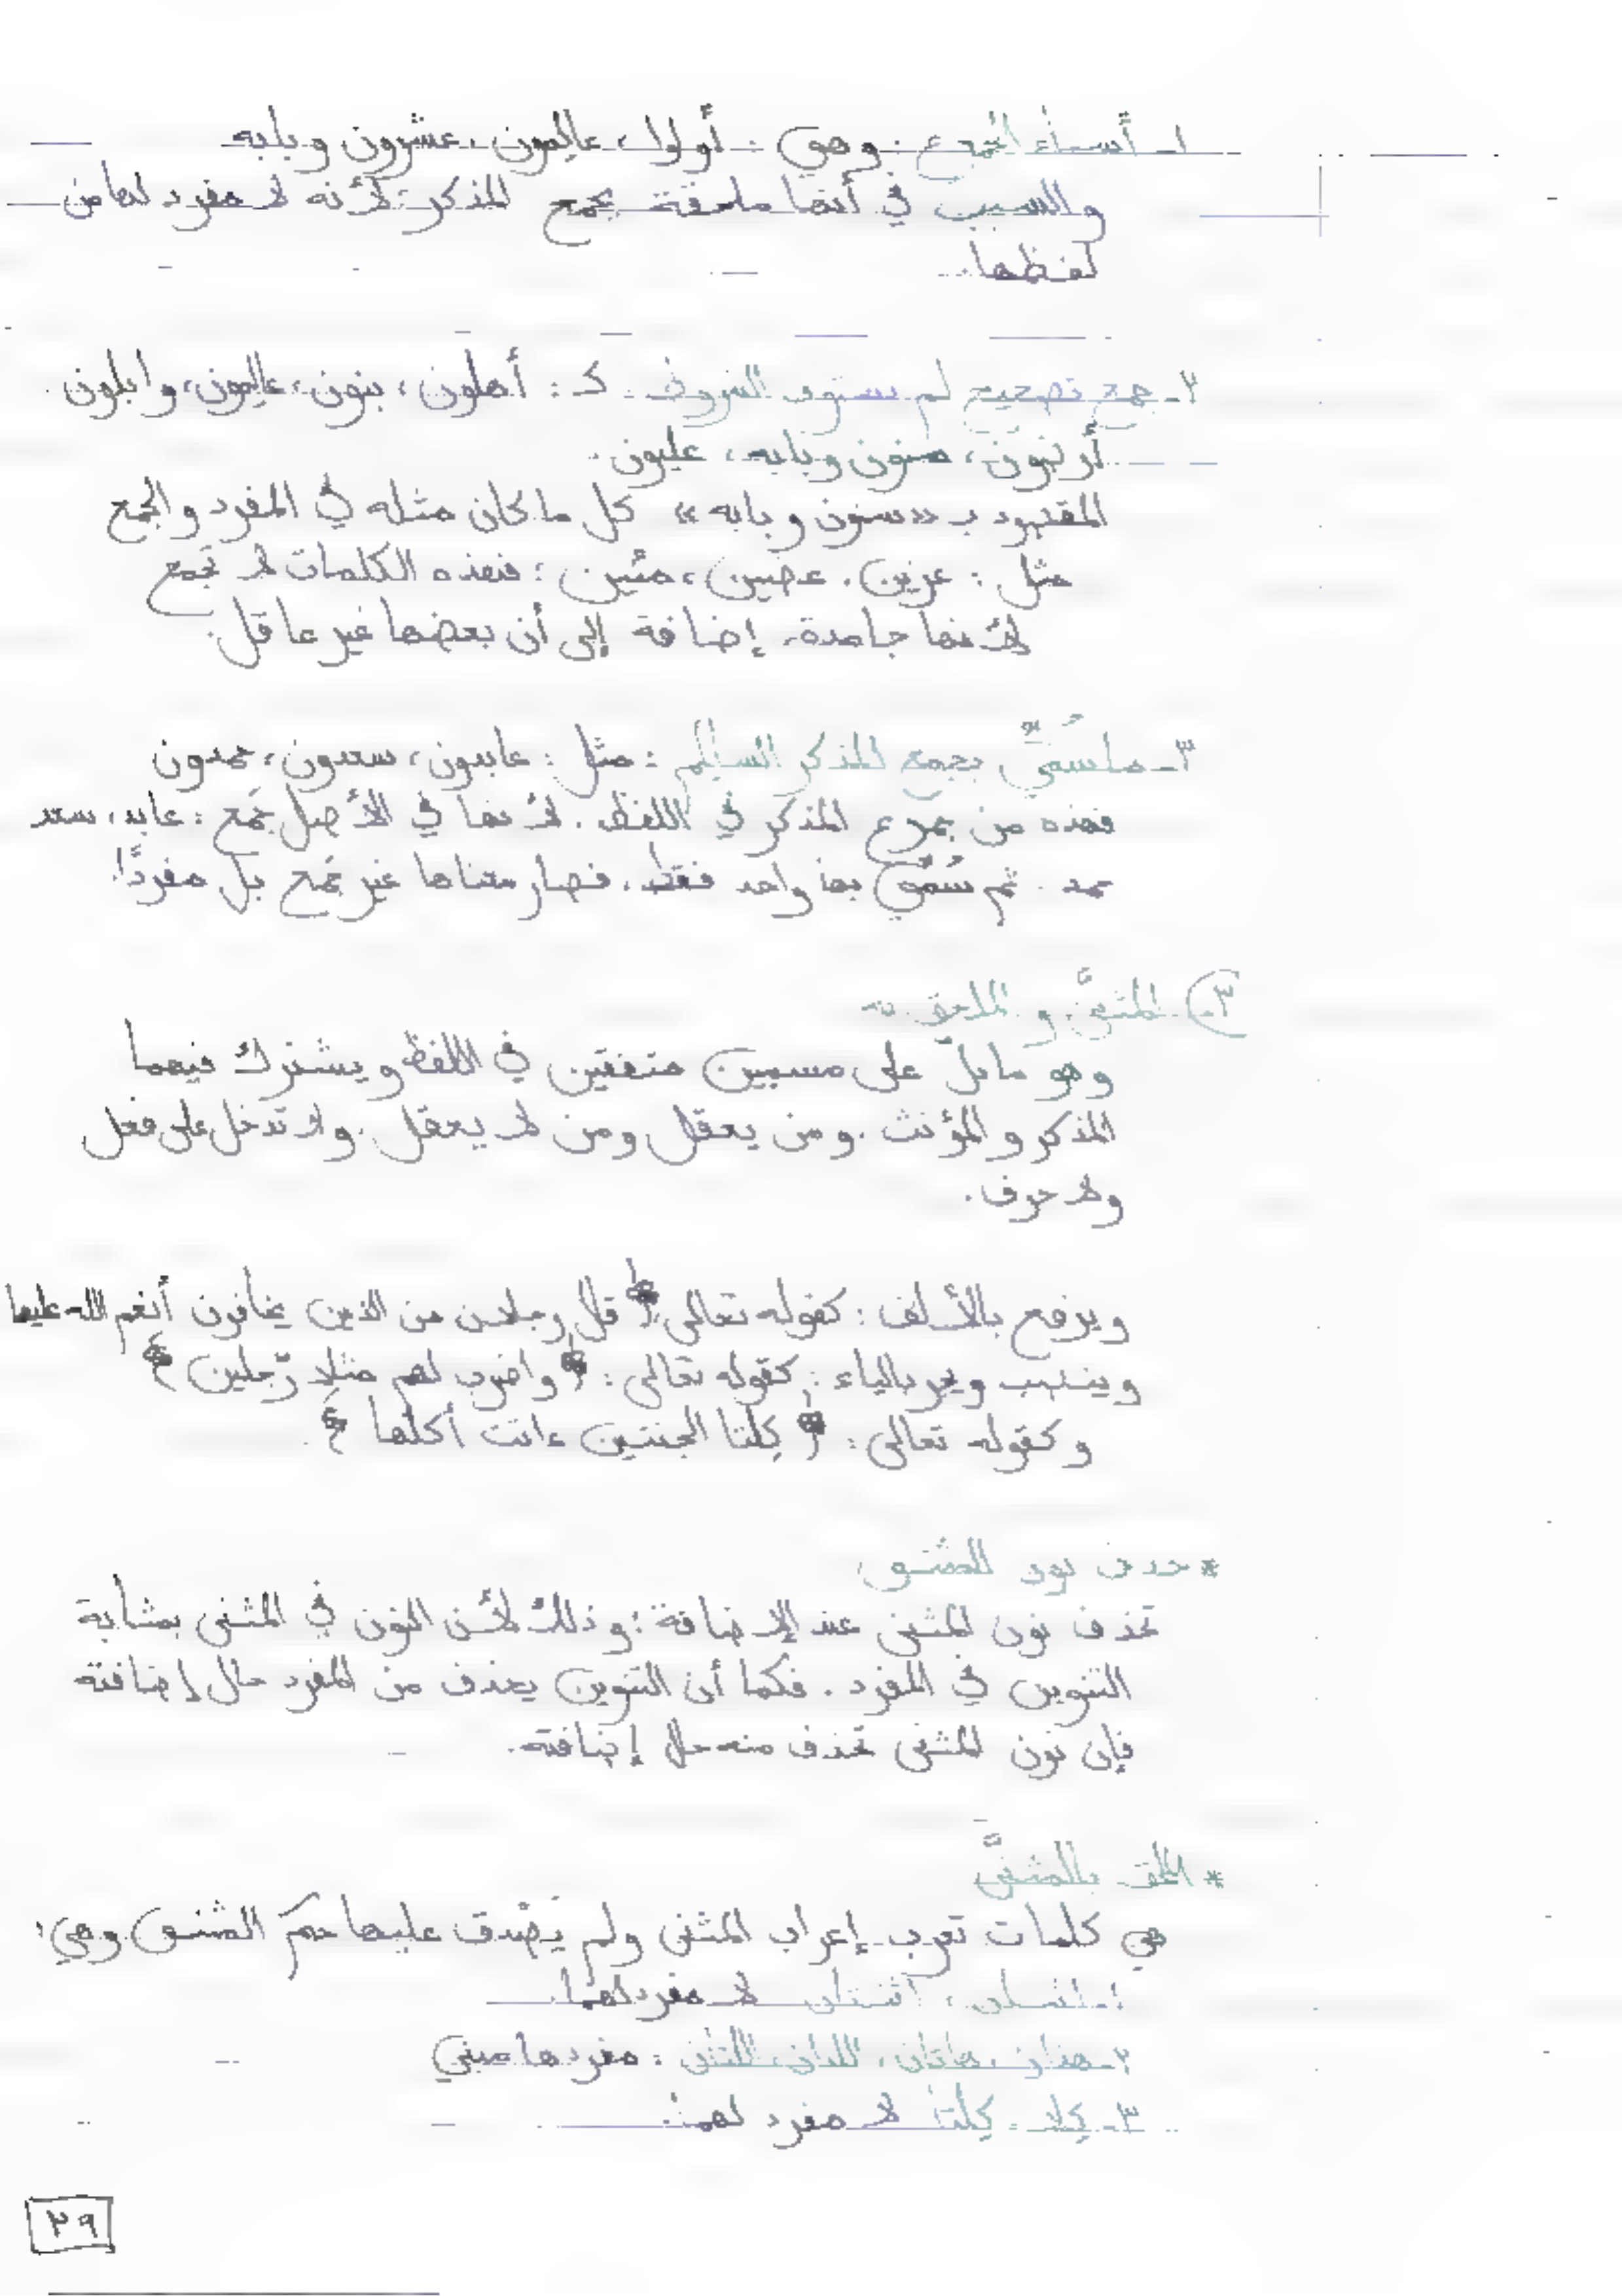 ١- أسماء الجموع : وهي : أولوا، عالمون، عشرون وبابه
والسبب في أنها ملحقة بجمع المذكر: لأنه لا مفرد لها من
لفظها.
٢- جمع تصحيح لم يستوف الشروط. كـ: أهلون، بنون، عالمون، وابلون
أرضون، سنون وبابه، عليون.
المقصود بـ «سنون وبابه» كل ما كان مثله في المفرد والجمع
مثل : عزين، عضين، مئين ؛ فهذه الكلمات لا تجمع
لأنها جامدة، إضافة إلى أن بعضها غير عاقل.
٣- ما سُمّيَ بجمع المذكر السالم : مثل : عابدون، سعدون، حمدون
فهذه من جموع المذكر في اللفظ. لأنها في الأصل جمع : عابد، سعد
حمد. ثم سُمّي بها واحد فقط، فصار معناها غير جمع بل مفردًا.
٣- المثنَّى و الملحق به
وهو ما دلّ على مسميين متفقين في اللفظ ويشترك فيهما
المذكر و المؤنث. ومن يعقل ومن لا يعقل. ولا تدخل على فعل
ولا حرف.
ويرفع بالألف : كقوله تعالى ﴿ قال رجلان من الذين يخافون أنعم الله عليهما
وينصب ويجر بالياء : كقوله تعالى : ﴿ واضرب لهم مثلا رّجلين ﴾
وكقوله تعالى : ﴿ كِلتا الجنتين ءاتت أكلها ﴾.
* حذف نون المثنى
تحذف نون المثنى عند الإضافة : وذلك لأن النون في المثنى بمثابة
التنوين في المفرد. فكما أن التنوين يحذف من المفرد حال إضافته
فإن نون المثنى تحذف منه حال إضافته.
* الملحق بالمثنَّى
هي كلمات تعرب إعراب المثنى ولم يَصْدق عليها حكم المثنى وهي:
١- اثنان، اثنتان لا مفرد لهما.
٢- هذان، هاتان، اللذان، اللتان : مفردها مبني
٣- كِلا، كِلْتَا لا مفرد لهما.
٢٩